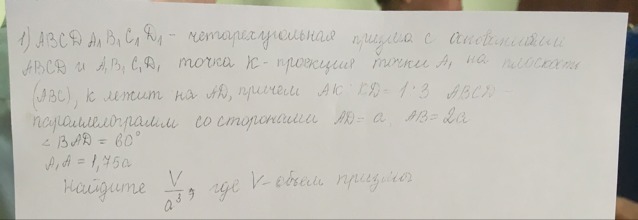 1) ABCD A₁B₁C₁D₁ - четырехугольная призма с основаниями
ABCD и A₁B₁C₁D₁ точка K - проекция точки A₁ на плоскость
(ABC), K лежит на AD, причем AK : KD = 1 : 3 ABCD -
параллелограмм со сторонами AD = a AB = 2a
∠ BAD = 60°
A₁A = 1,75a
Найдите V/a³, где V - объем призмы